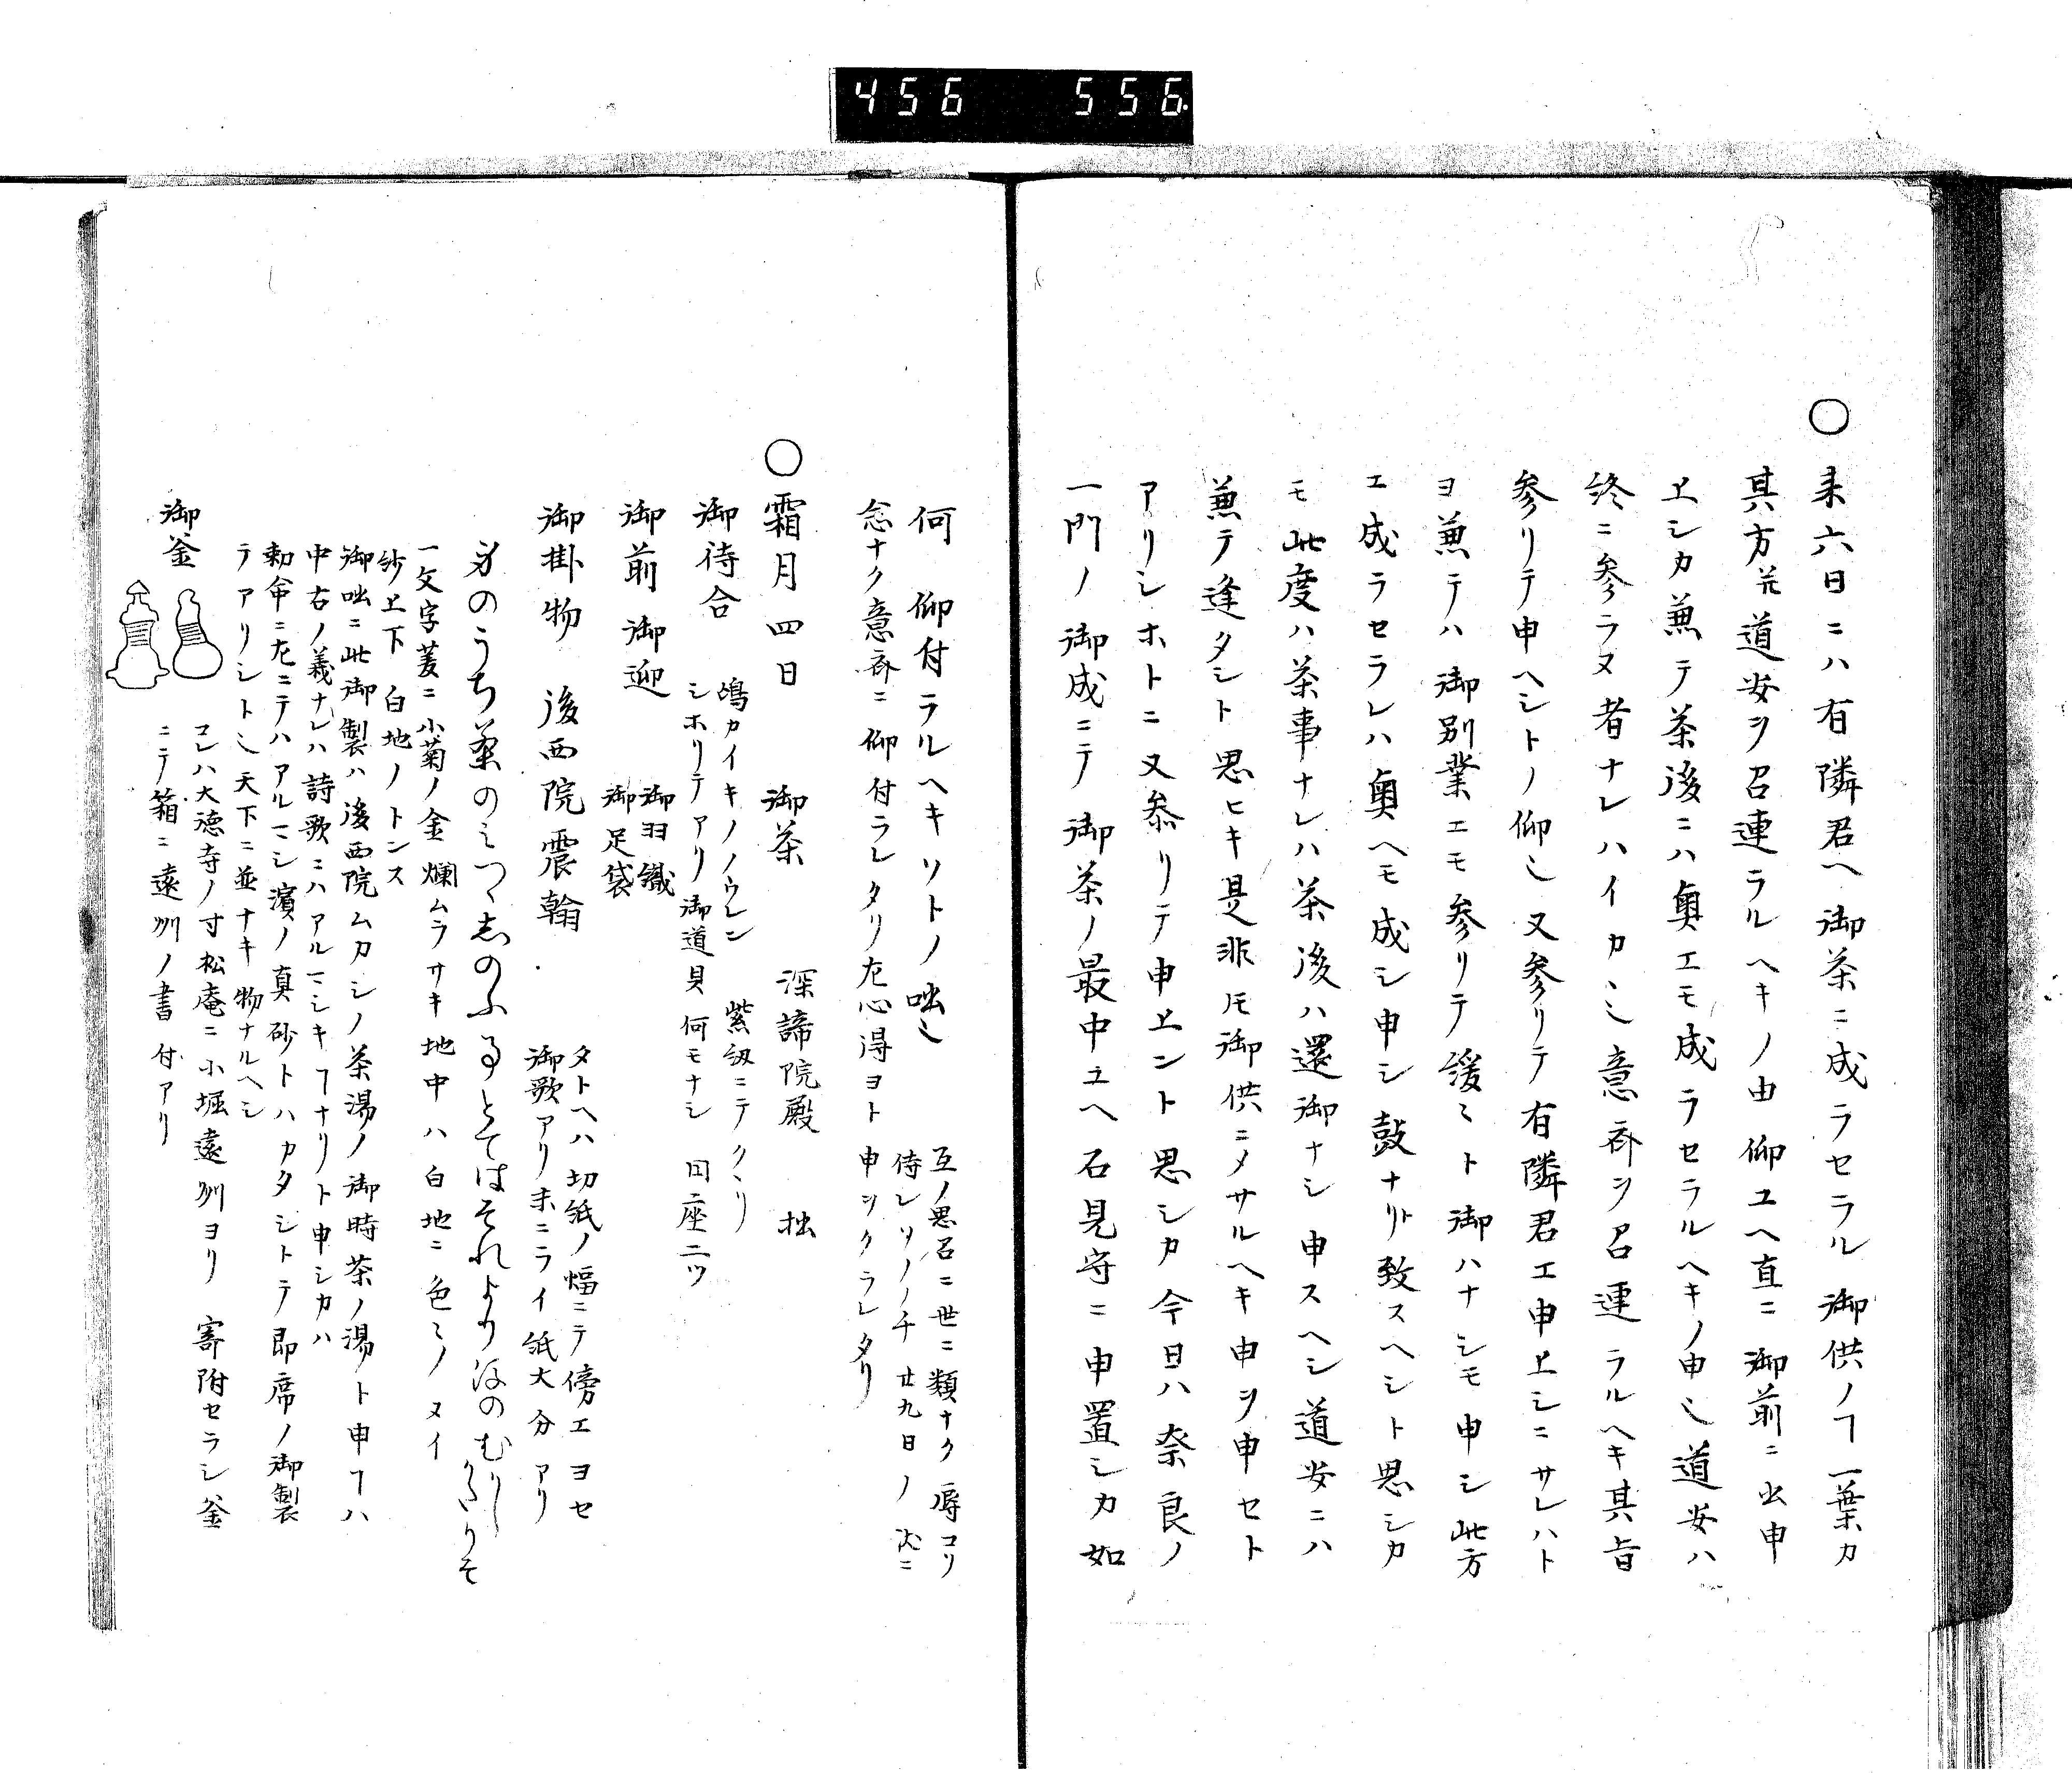 456 556
○来六日ニハ有隣君ヘ御茶ニ成ラセラル御供ノヿ一葉カ
其方并道安ヲ召連ラルヘキノ由仰ユヘ直ニ御前ニ出申
上シカ兼テ茶後ニハ奥エモ成ラセラルヘキノ申也道安ハ
終ニ参ラヌ者ナレハイカヽ也意斎ヲ召連ラルヘキ其旨
参リテ申ヘシトノ仰也又参リテ有隣君エ申上シニサレハト
ヨ兼テハ御別業エモ参リテ緩々ト御ハナシモ申シ此方
エ成ラセラレハ奥ヘモ成シ申シ鼓ナリト致スヘシト思シカ
モ此度ハ茶事ナレハ茶後ハ還御ナシ申スヘシ道安ニハ
兼テ逢タシト思ヒキ是非トモ御供ニメサルヘキ申ヲ申セト
アリシホトニ又参リテ申上ント思シカ今日ハ奈良ノ
一門ノ御成ニテ御茶ノ最中ユヘ石見守ニ申置シカ如
何仰付ラルヘキソトノ咄也 互ノ思召ニ世ニ類ナク辱コリ
侍レソノノチ廿九日ノ次ニ
念ナク意斎ニ仰付ラレタリ左心得ヨト申ツクラレタリ
○霜月四日 御茶 深諦院殿 拙
御待合 嶋カイキノノウレン 紫紐ニテクヽリ
シホリテアリ御道具何モナシ 円座二ツ
御前御迎 御羽織
御足袋
御掛物 後西院震翰 タトヘハ切紙ノ幅ニテ傍エヨセ
御歌アリ末ニライ紙大分アリ
のうち のミつく志のふるとてはそれより のむかしかたりそ
一文字菱ニ小菊ノ金爛ムラサキ地中ハ白地ニ色々ノヌイ
紗上下白地ノトンス
御咄ニ此御製ハ後西院ムカシノ茶湯ノ御時茶ノ湯ト申ヿハ
中古ノ義ナレハ詩歌ニハアルマシキヿナリト申シカハ
勅命ニ左ニテハアルマシ濱ノ真砂トハカタシトテ即席ノ御製
テアリシト也天下ニ並ナキ物ナルヘシ
御釜 コレハ大徳寺ノ寸松庵ニ小堀遠州ヨリ寄附セラシ釜
ニテ箱ニ遠州ノ書付アリ